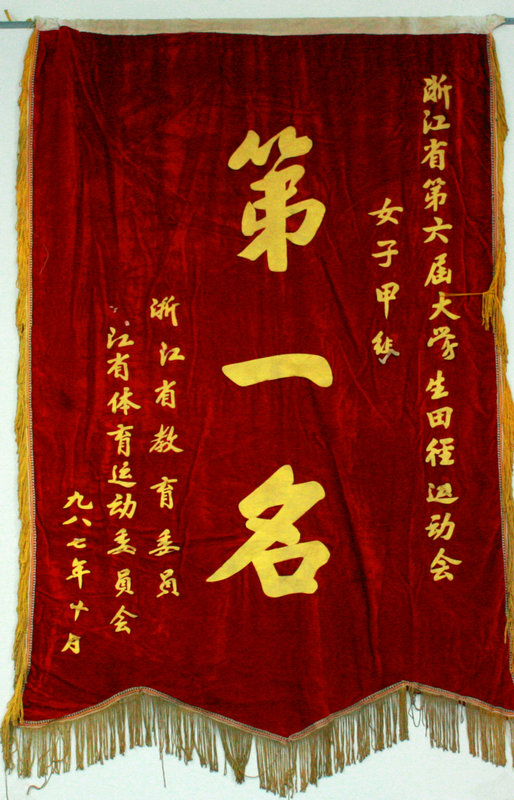 浙江省第六届大学生田径运动会
女子甲组
第一名
浙江省教育委员
江省体育运动委员会
九八七年十月